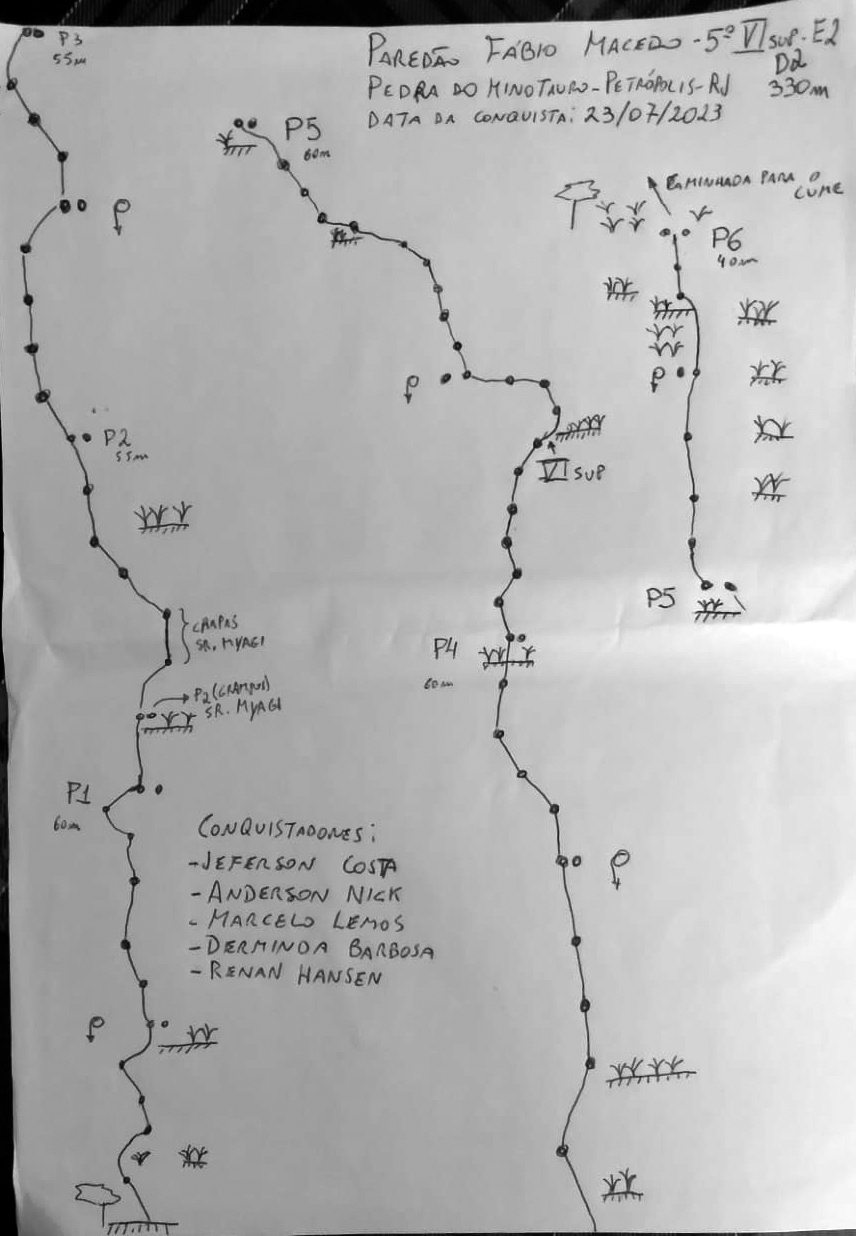 PAREDÃO FÁBIO MACEDO - 5º VI SUP - E2
D2
PEDRA DO MINOTAURO - PETRÓPOLIS - RJ 330m
DATA DA CONQUISTA: 23/07/2023
P3
55m
P5
60m
CAMINHADA PARA O
CUME
P6
40m
P2
55m
VI SUP
P5
CHAPAS
SR. MYAGI
P4
60m
P2 (GRAMPOS)
SR. MYAGI
P1
60m
CONQUISTADORES:
- JEFERSON COSTA
- ANDERSON NICK
- MARCELO LEMOS
- DERMINDA BARBOSA
- RENAN HANSEN